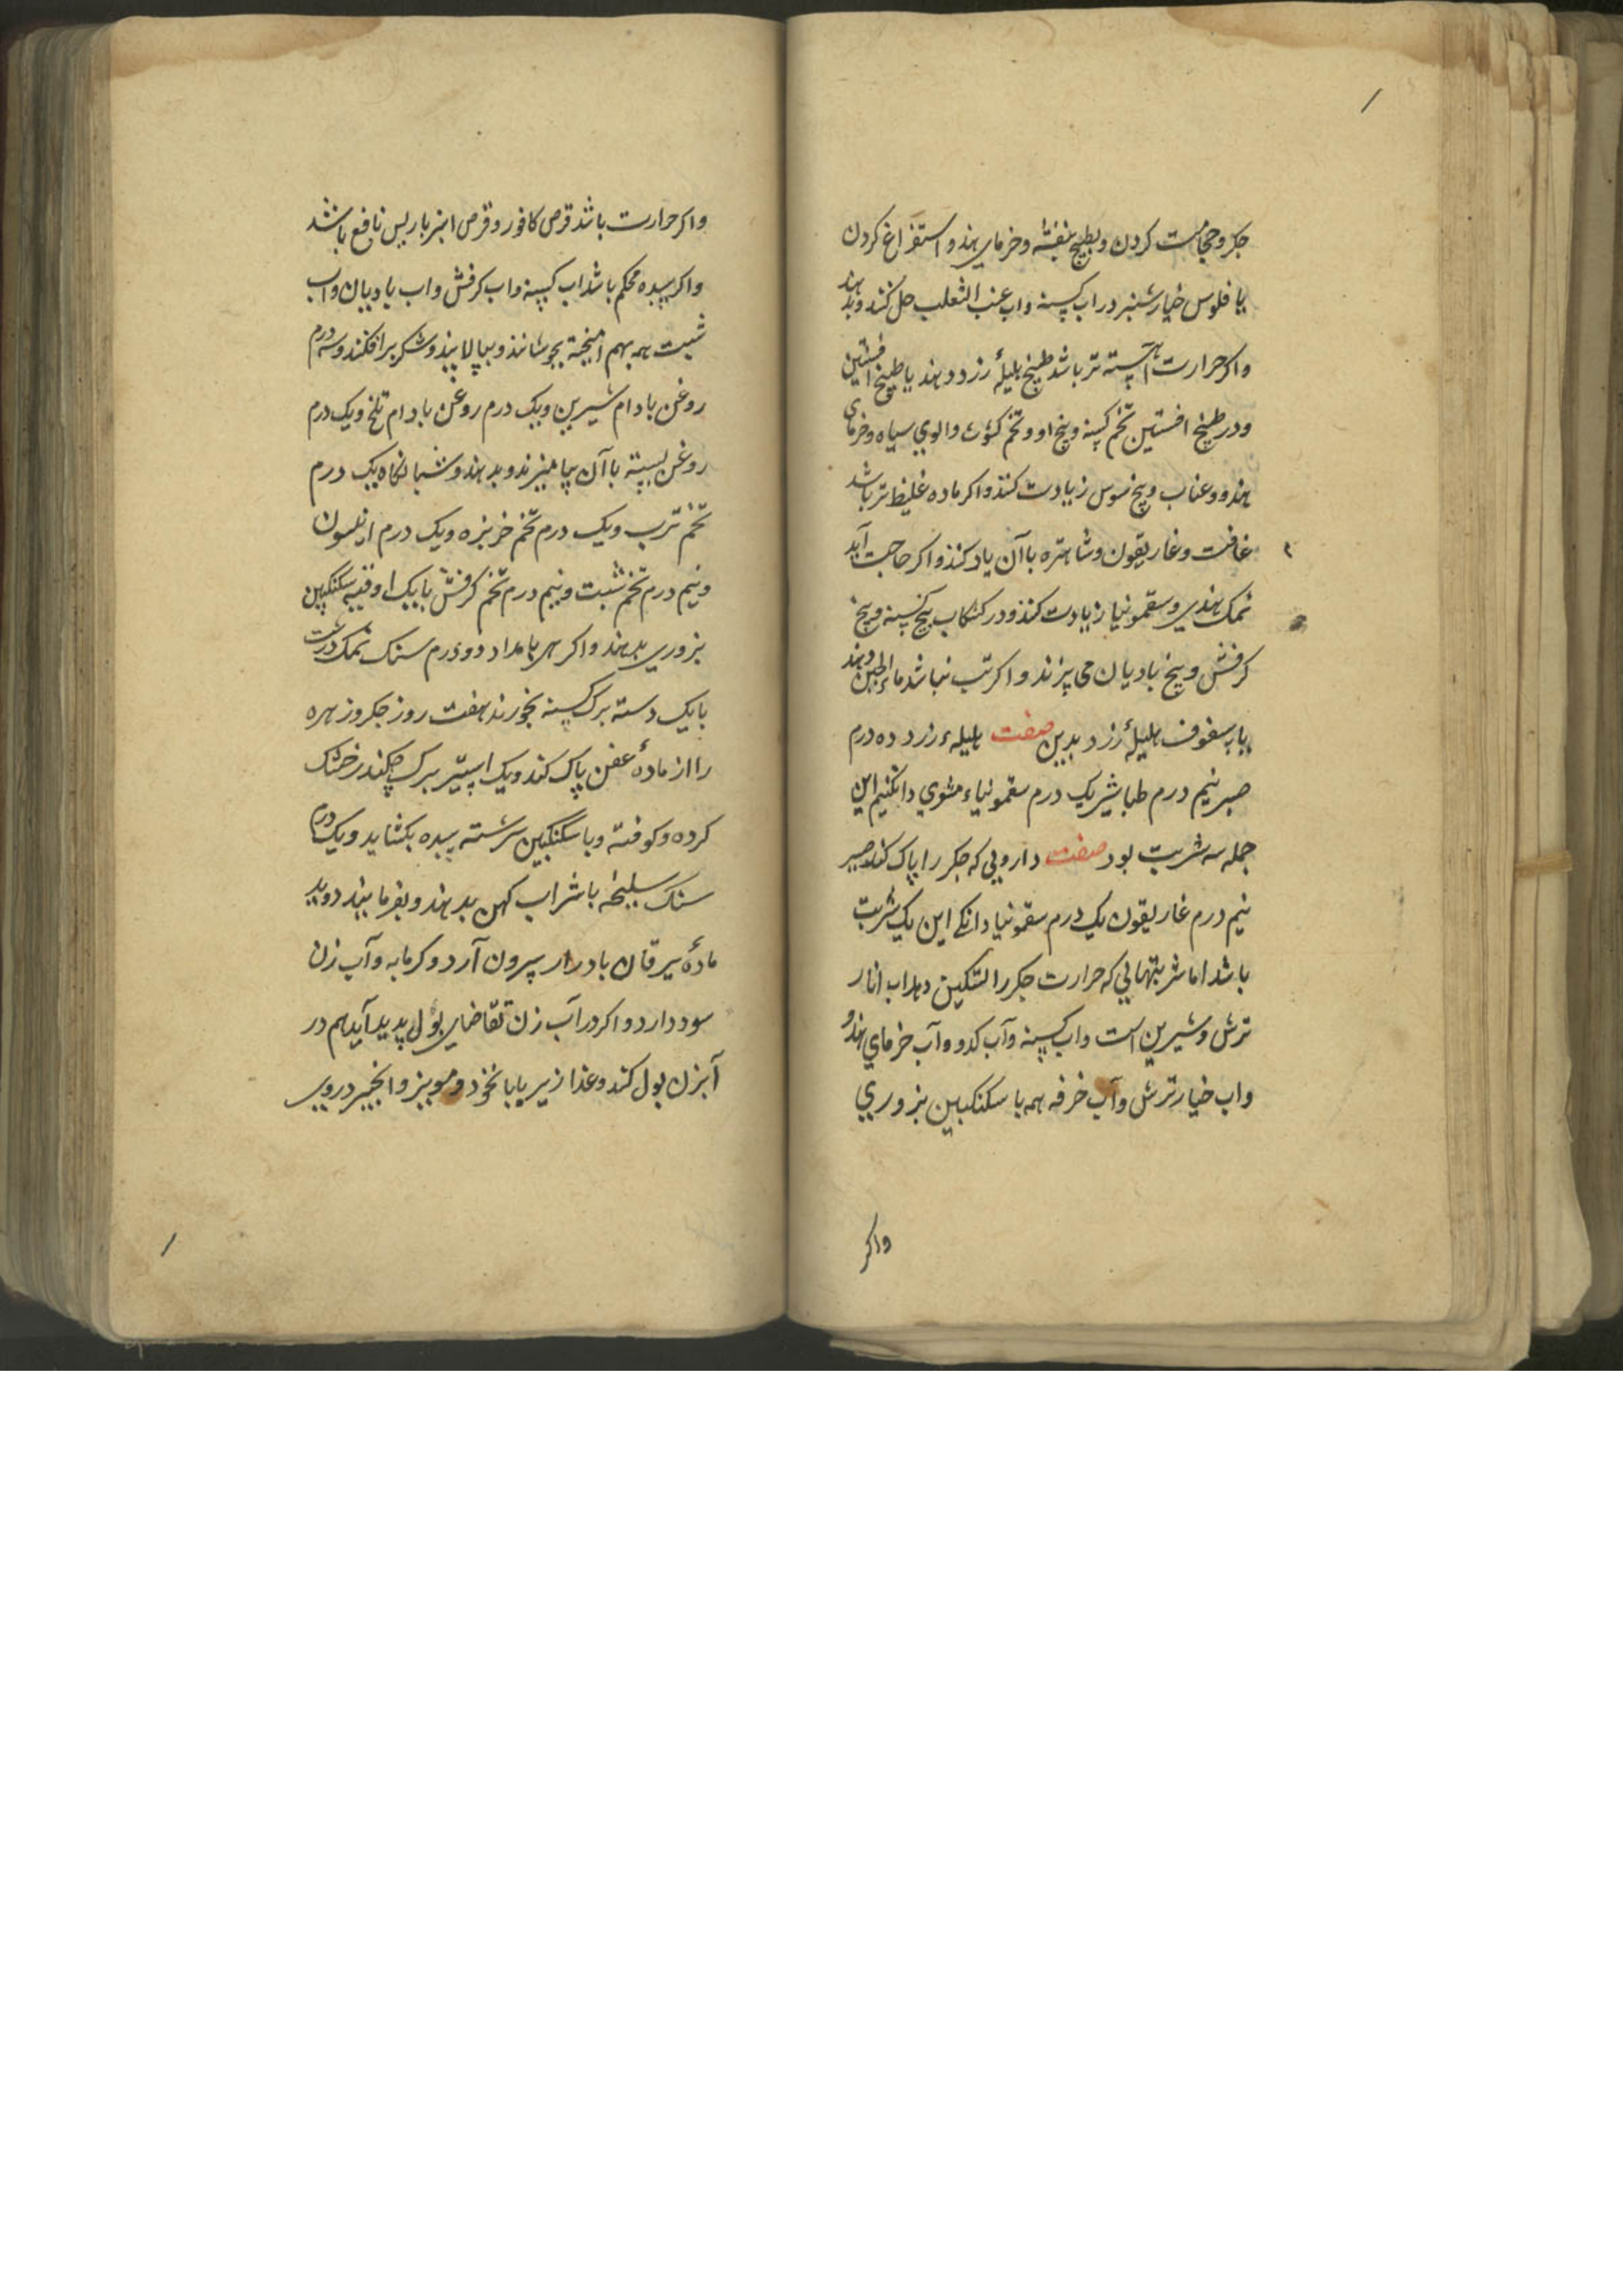 جکر و حجامت کردن و بطبیخ بنفشه و خرمای هندو استفراغ کردن
یا فلوس خیارشنبر در اب کسنه و اب عنب الثعلب حل کنند و بدهند
واکر حرارت آهسته تر باشد طبیخ هلیلۀ زرد دهند یا طبیخ افسنتین
و در طبیخ افسنتین تخم کسنه و بیخ او و تخم کشوث و الوی سیاه و خرمای
هندو و عناب و بیخ سوس زیادت کنند واکر ماده غلیظ تر باشد
غافت و غاریقون و شاهتره باآن یاد کنند واکر حاجت آید
نمک هندی و سقمونیا زیادت کنند و در کشکاب بیخ کسنه و بیخ
کرفش و بیخ بادیان می پزند و اکر تب نباشد ماء الجبن دهند
یا سفوف هلیلۀ زرد بدین صفت هلیلهء زرد ده درم
صبر نیم درم طباشیر یک درم سقمونیاء مشوی دانکنیم این
جمله سه شربت بود صفت دارویی که جکر را پاک کند صبر
نیم درم غاریقون یک درم سقمونیا دانکی این یک شربت
باشد اما شربتهایی که حرارت جکر را تسکین دهد اب انار
ترش و شیرین است و اب کسنه و آب کدو و آب خرمای هندو
و اب خیار ترش و آب خرفه همه با سکنکبین بزوری
واکر
واکر حرارت باشد قرص کافور و قرص انبرباریس نافع باشد
واکر سده محکم باشد اب کسنه و اب کرفش و اب بادیان و اب
شبت همه بهم امیخته بجوشانند و بپالایند و شکر برافکنند و سه درم
روغن بادام شیرین و یک درم روغن بادام تلخ و یک درم
روغن پسته باآن بیامیزند و بدهند و شبانکاه یک درم
تخم ترب و یک درم تخم خربزه و یک درم انیسون
و نیم درم تخم شبت و نیم درم تخم کرفش بایک اوقیه سکنکبین
بزوری بدهند واکر هر بامداد دو درم سنک نمک درشت
بایک دسته برک کسنه بخورند هفت روز جکر و زهره
را از مادۀ عفن پاک کند و یک استیر برک چکندر خشک
کرده و کوفته و با سکنکبین سرشته سده بکشاید و یک درم
سنک سلیخه با شراب کهن بدهند و بفرمایند دوید
مادۀ یرقان بادرار بیرون آرد و کرمابه و آب زن
سود دارد واکر در آب زن تقاضای بول پدید آید هم در
آبزن بول کند و غذا زیربا با نخود و مویز و انجیر در وی